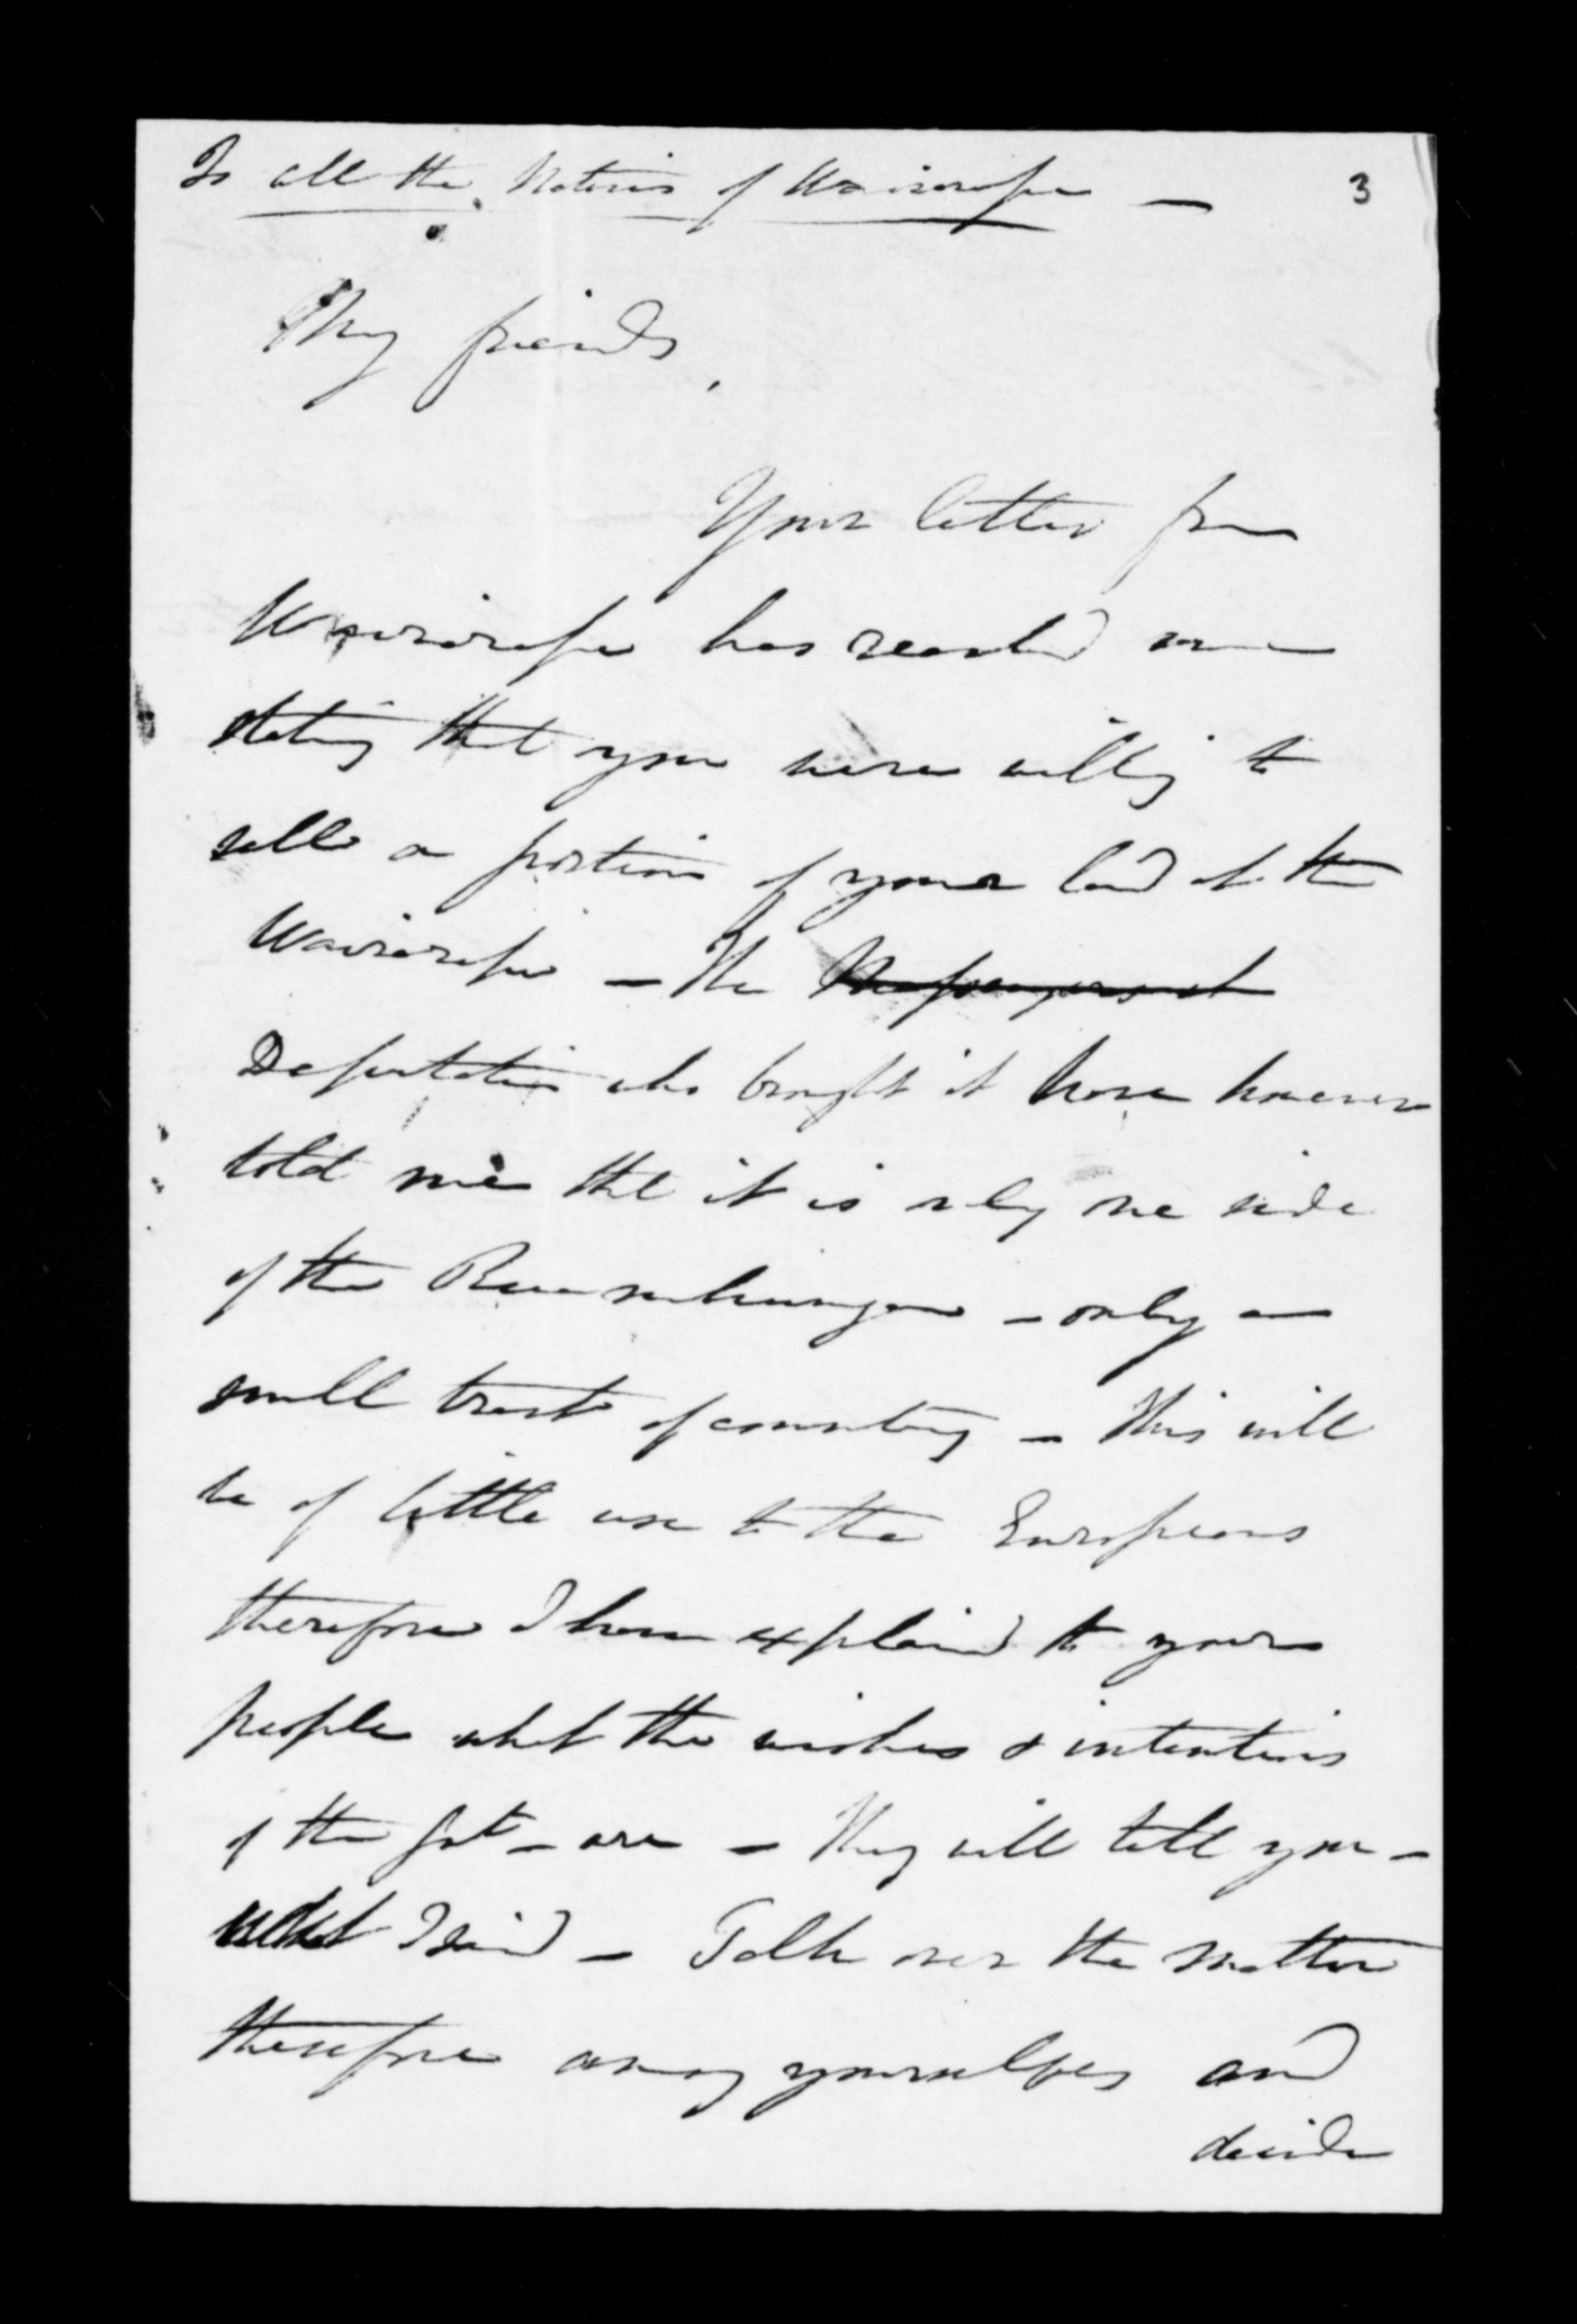 To all the Natives of Wairarapa — 3
My friends,
Your letter from
Wairarapa has reached me
stating that you were willing to
sell a portion of your land at the
Wairarapa — The Messengers
Deputation who brought it have however
told me that it is only one side
of the Ruamahunga — only a
small tract of country — This will
be of little use to the Europeans
therefore I have explained to your
people what the wishes & intentions
of the Govt — are — They will tell you —
what I said — Talk over the matter
therefore among yourselves and
decide